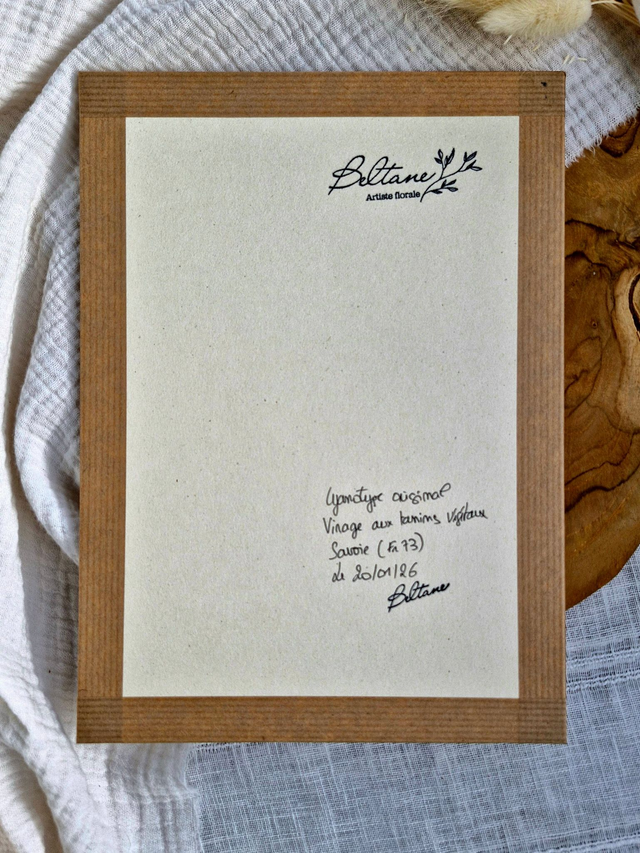 Beltane
Artiste florale
Cyanotype original
Virage aux tanins végétaux
Savoie (Fr 73)
Le 20/01/26
Beltane